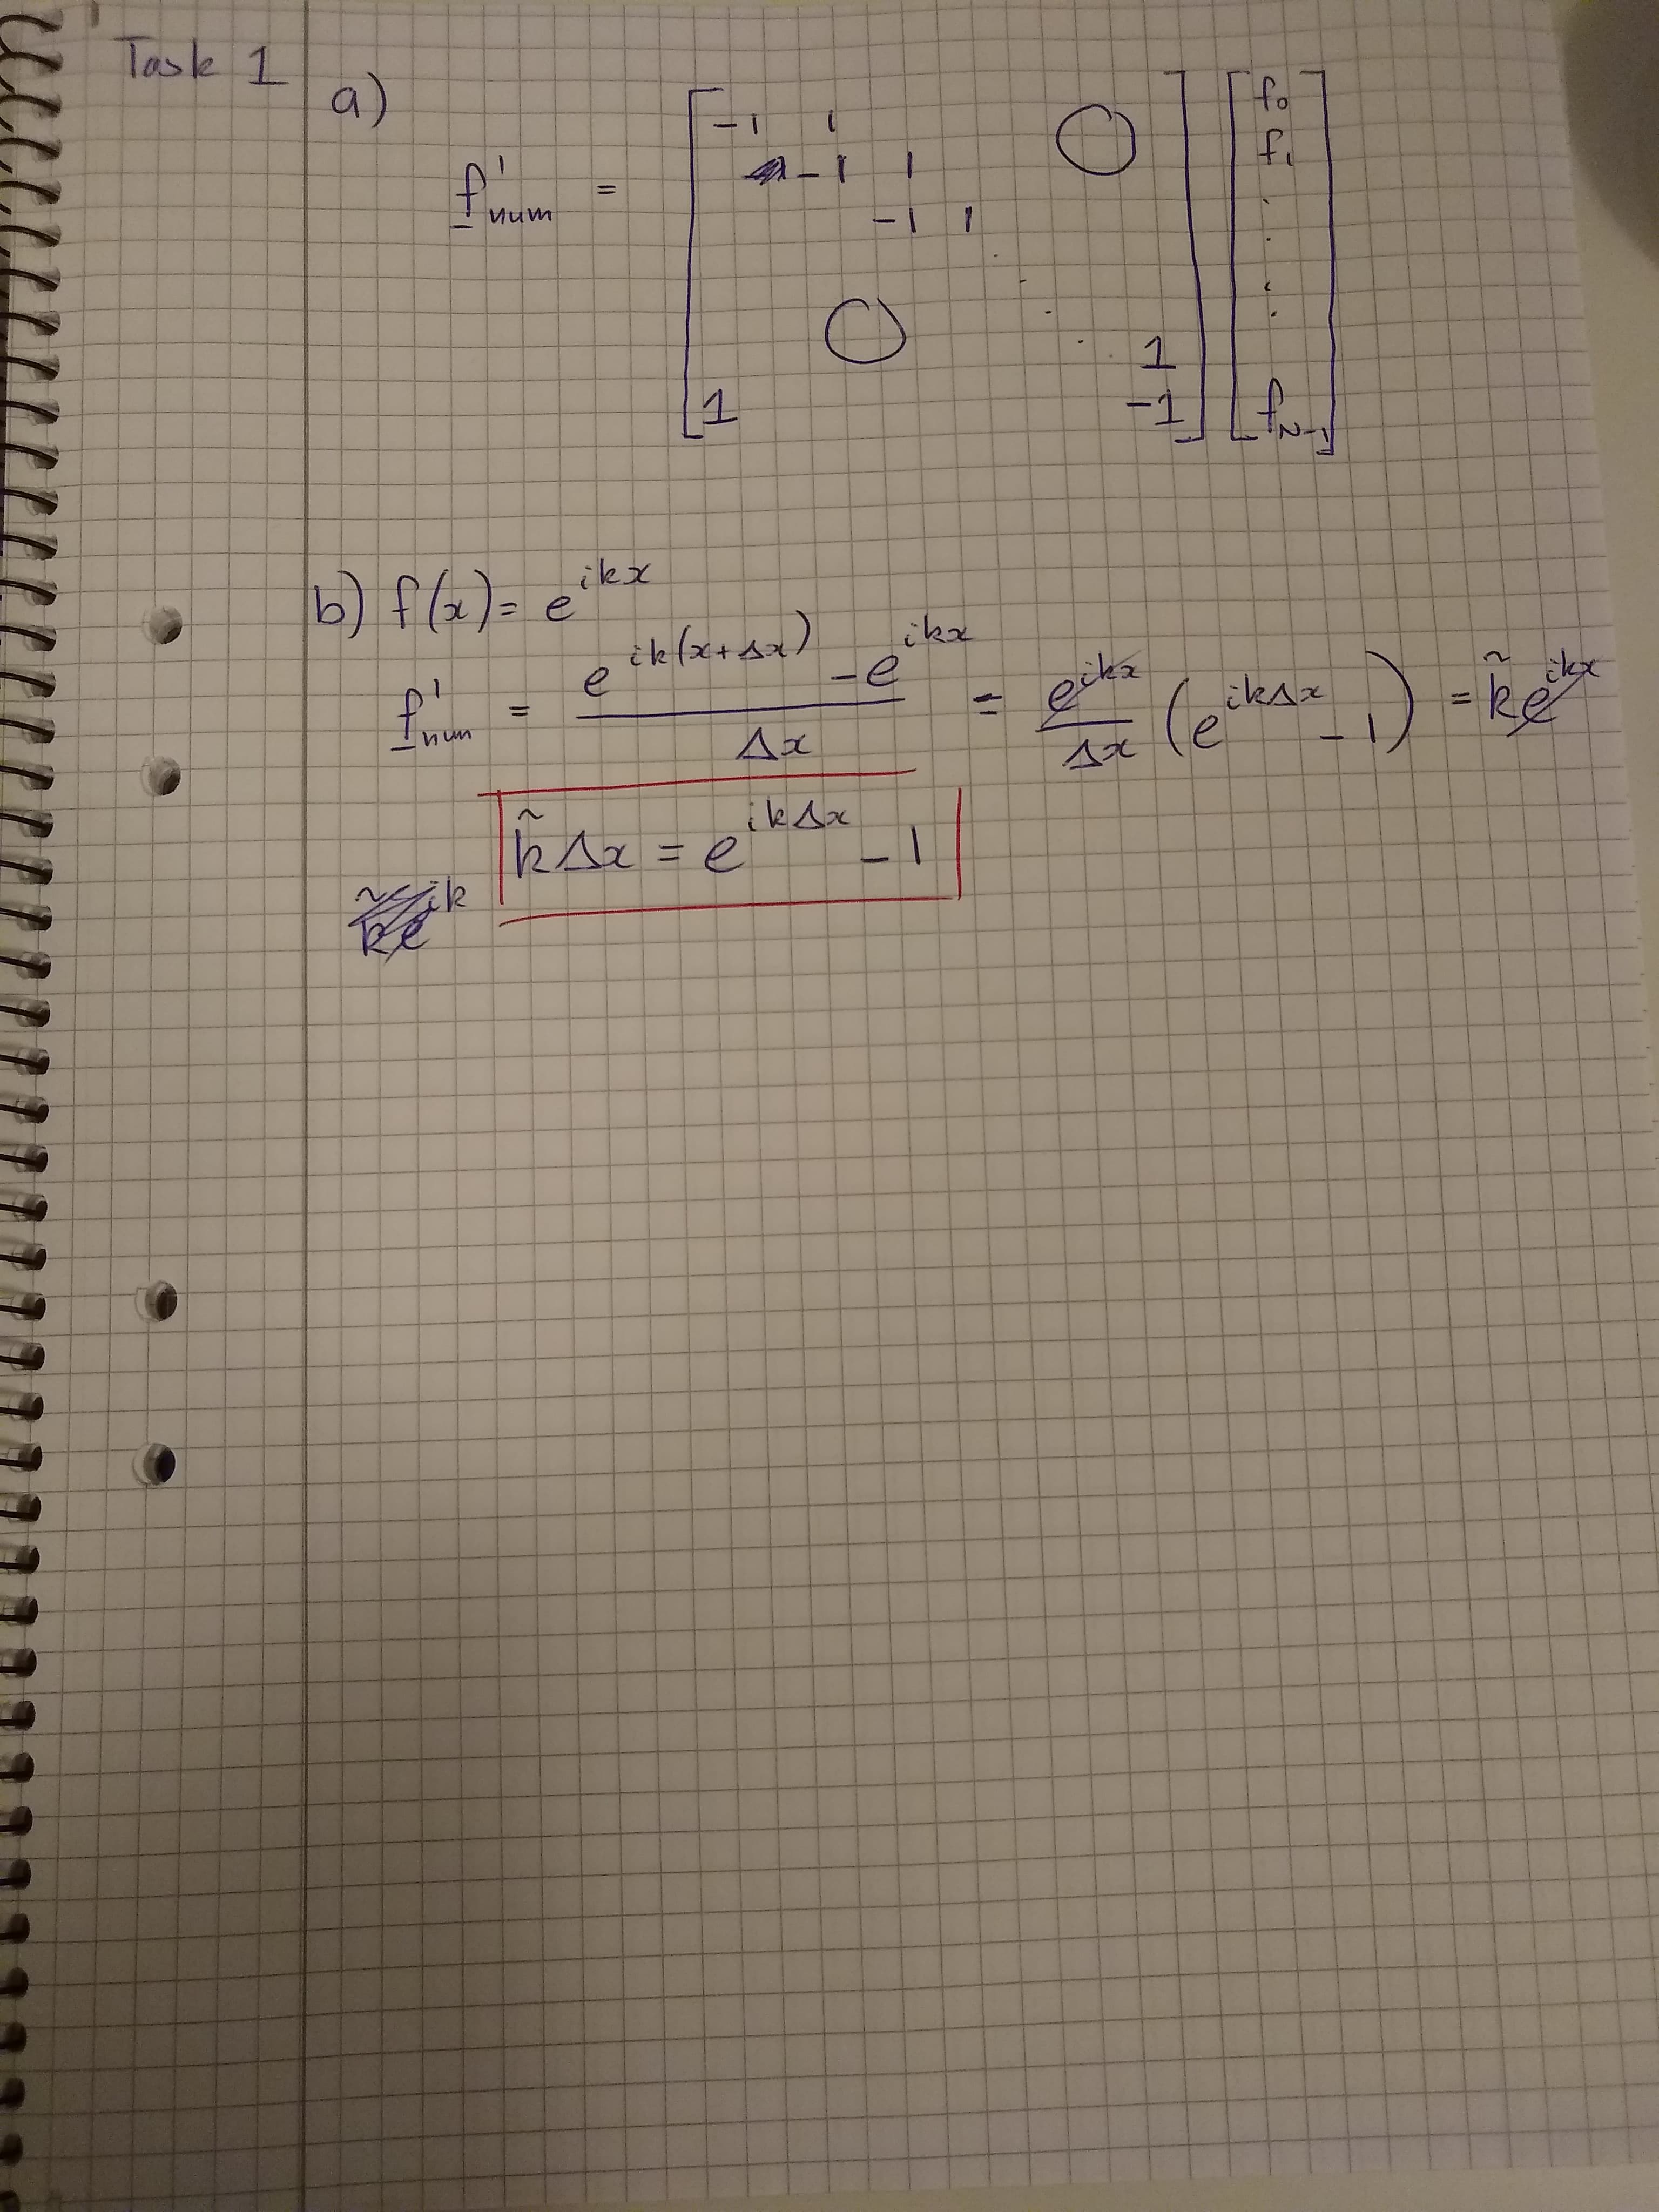 Task 1
a)
f'num = [ -1 1 0 ] [ f0 ]
-1 1 f1
-1 1 .
. . . .
0 . 1 .
1 -1 fN-1
b) f(x) = e^{ikx}
f'num = (e^{ik(x+Δx)} - e^{ikx}) / Δx = e^{ikx}/Δx (e^{ikΔx} - 1) = k̃e^{ikx}
k̃Δx = e^{ikΔx} - 1
k̃e^{ik}